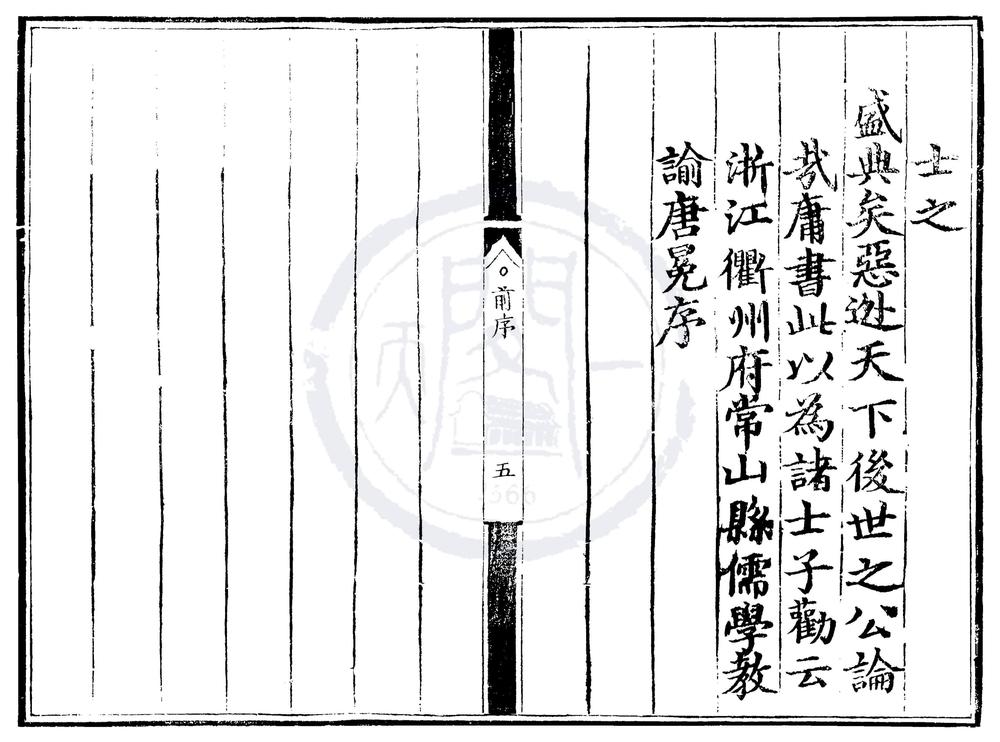 士之
盛典矣惡逃天下後世之公論
哉庸書此以為諸士子勸云
浙江衢州府常山縣儒學教
諭唐冕序
前序
五